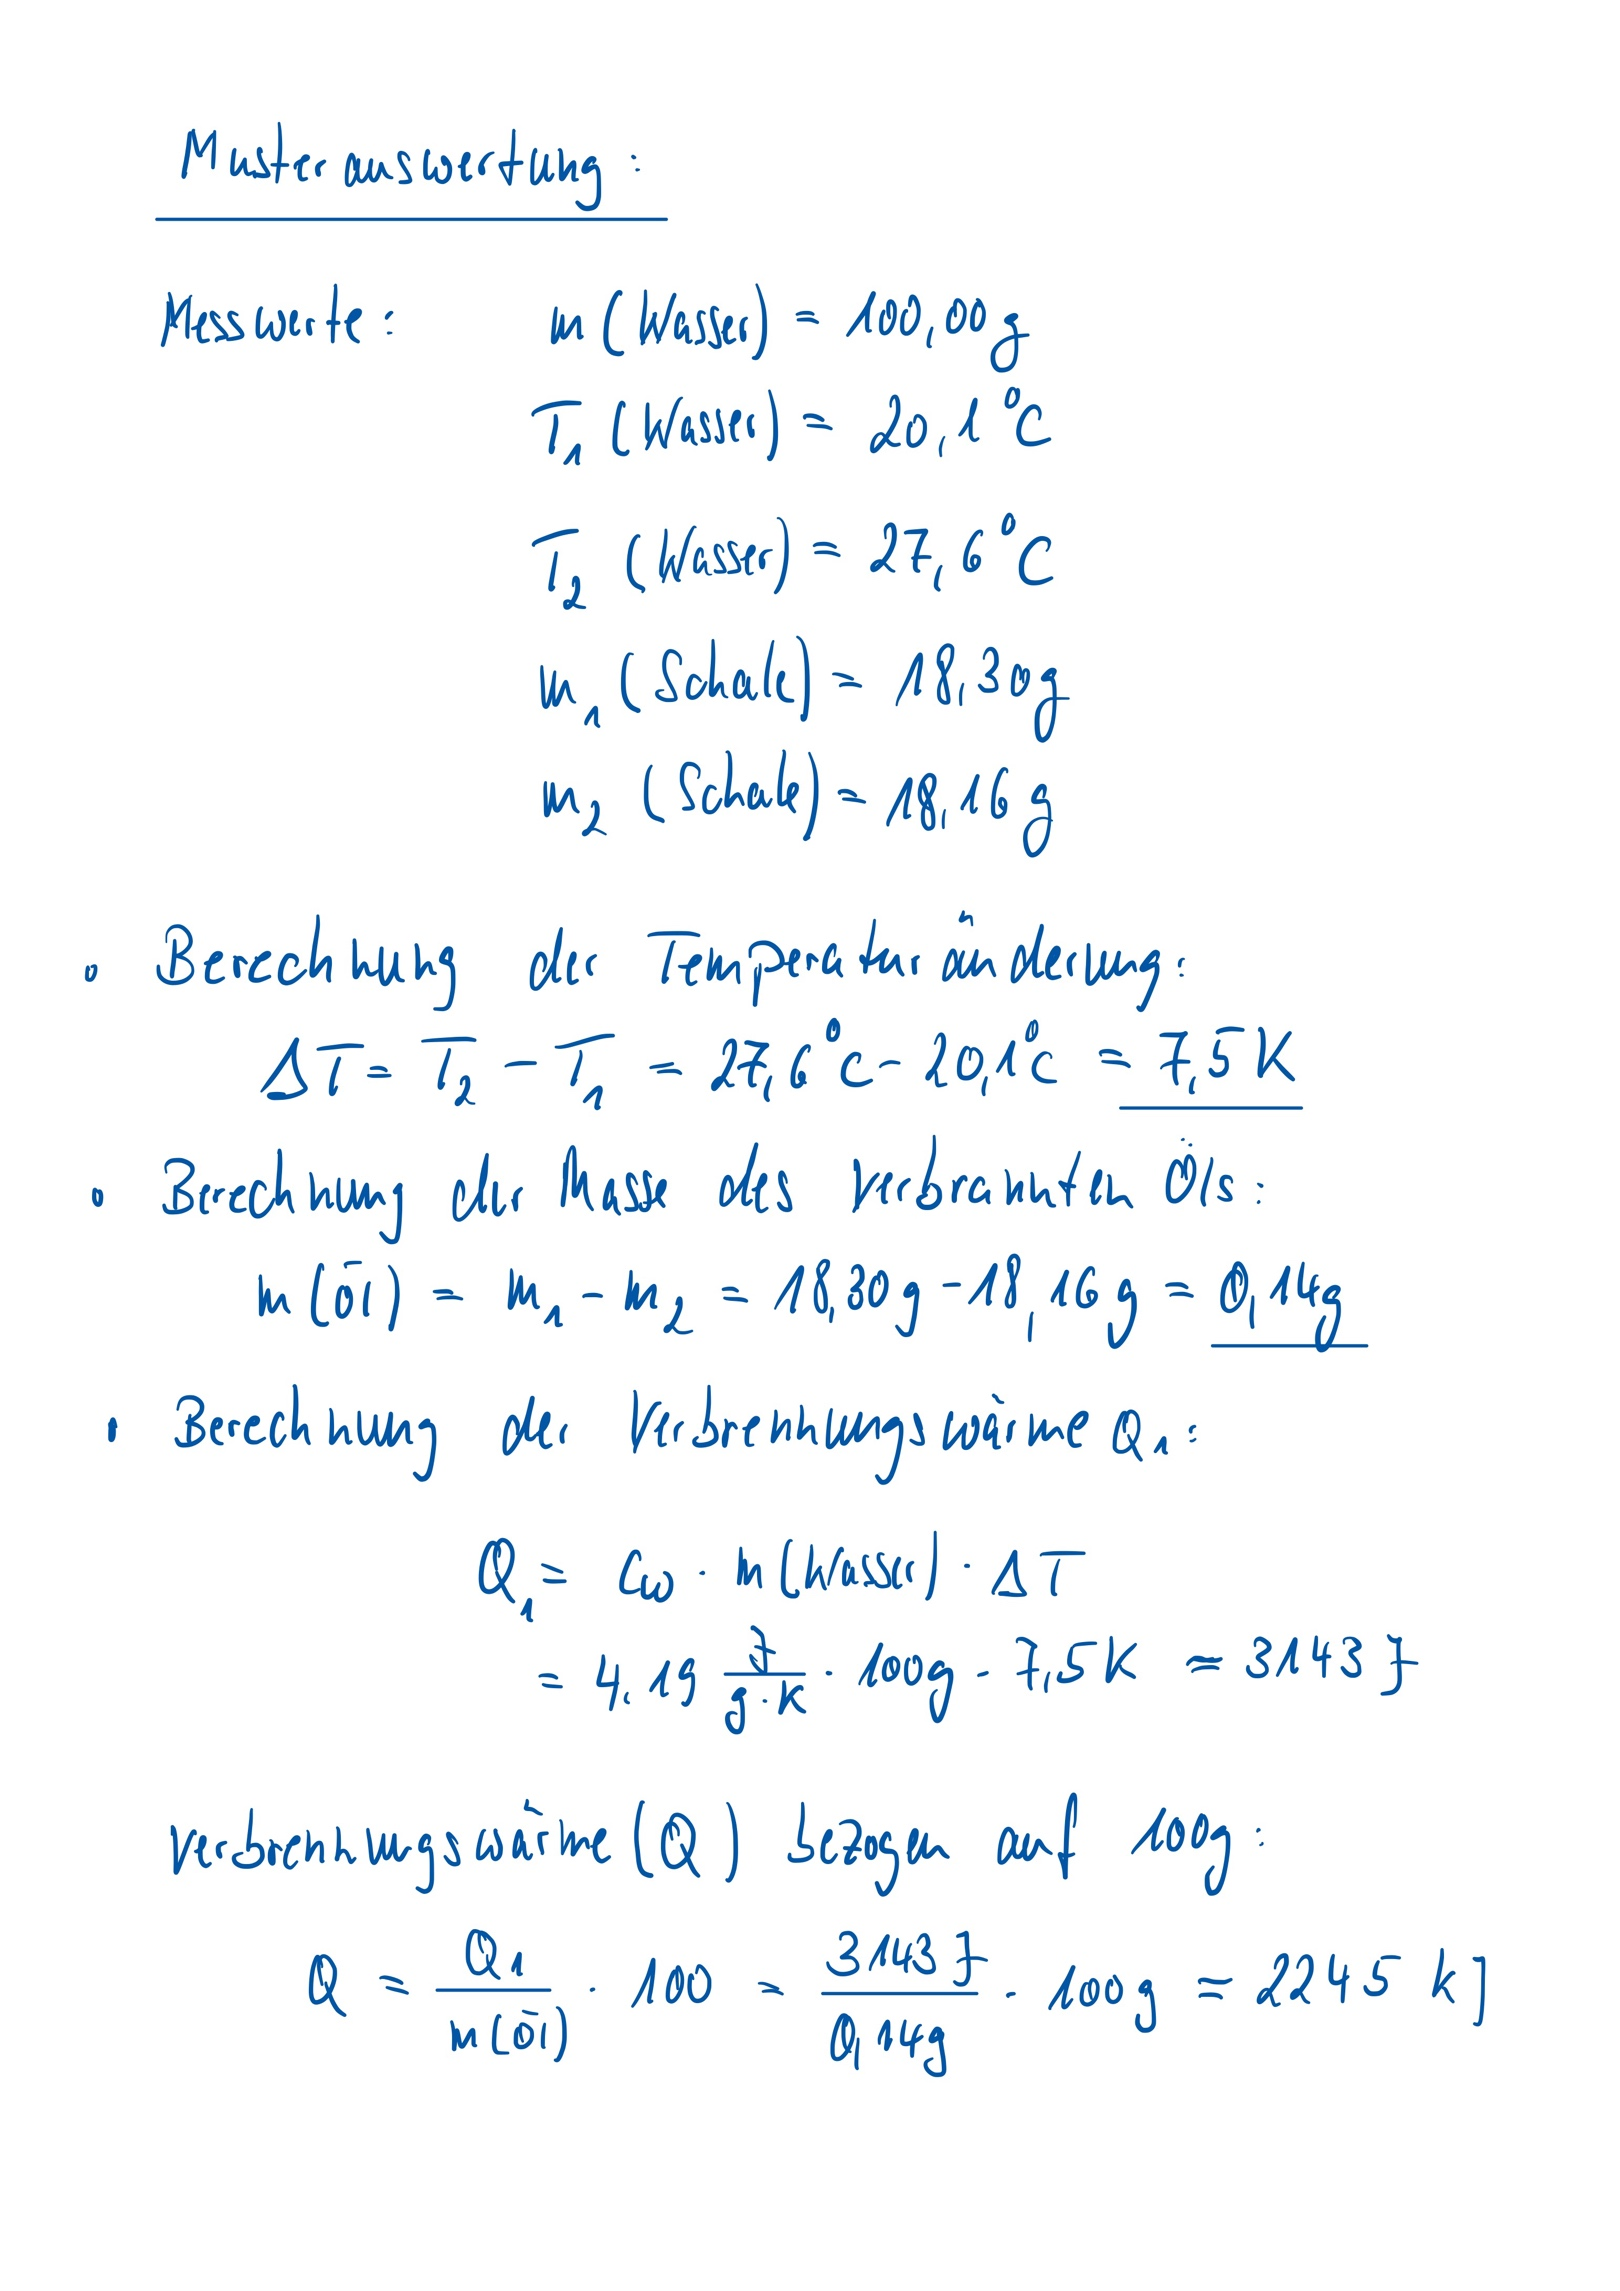 Musterauswertung:
Messwerte: m (Wasser) = 100,00g
T₁ (Wasser) = 20,1°C
T₂ (Wasser) = 27,6°C
m₁ (Schale) = 18,30g
m₂ (Schale) = 18,16g
• Berechnung der Temperaturänderung:
ΔT = T₂ - T₁ = 27,6°C - 20,1°C = 7,5K
• Berechnung der Masse des verbrannten Öls:
m(Öl) = m₁ - m₂ = 18,30g - 18,16g = 0,14g
• Berechnung der Verbrennungswärme Q₁:
Q₁ = Cw · m(Wasser) · ΔT
= 4,19 J/(g·K) · 100g · 7,5K ≈ 3143 J
Verbrennungswärme (Q) bezogen auf 100g:
Q = Q₁/m(Öl) · 100 = 3143 J/0,14g · 100g ≈ 2245 kJ